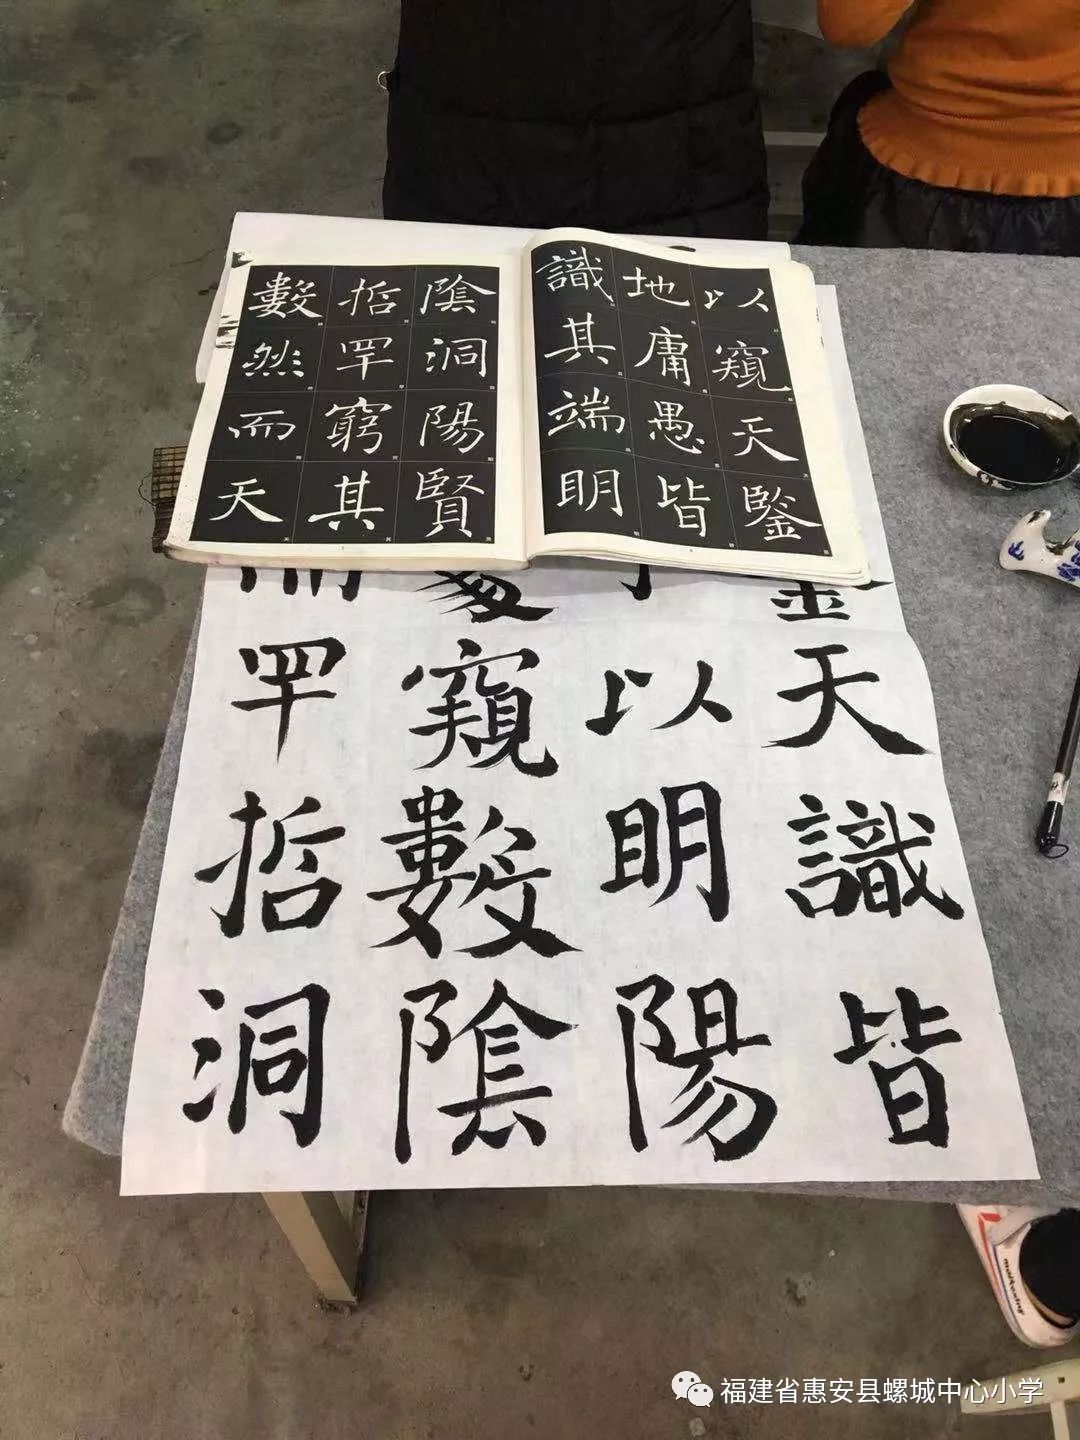 以窺天鑒
地庸愚皆
識其端明
陰洞陽賢
哲罕窮其
數然而天
天識皆
以明陽
窺數陰
罕哲洞
福建省惠安县螺城中心小学